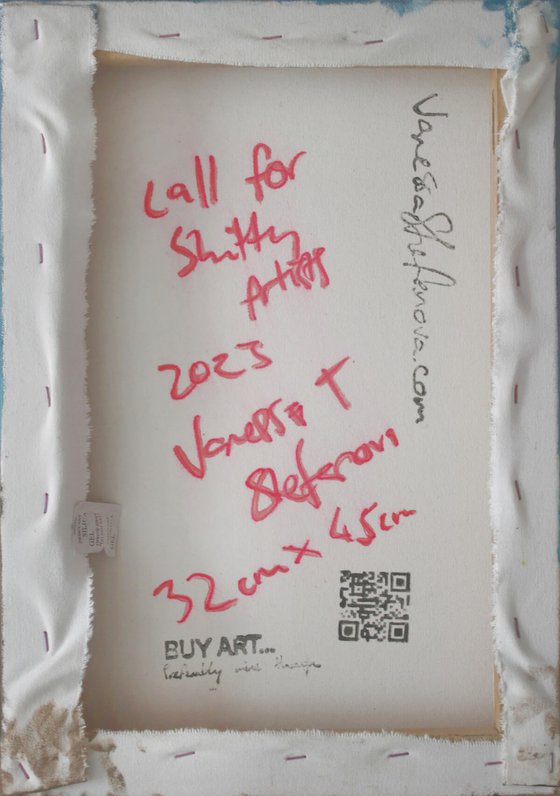 Call for
Shitty
Artists
2023
Vanessa T
Stefanova
32cm x 45cm
BUY ART...
Preferably mine though
VanessaStefanova.com